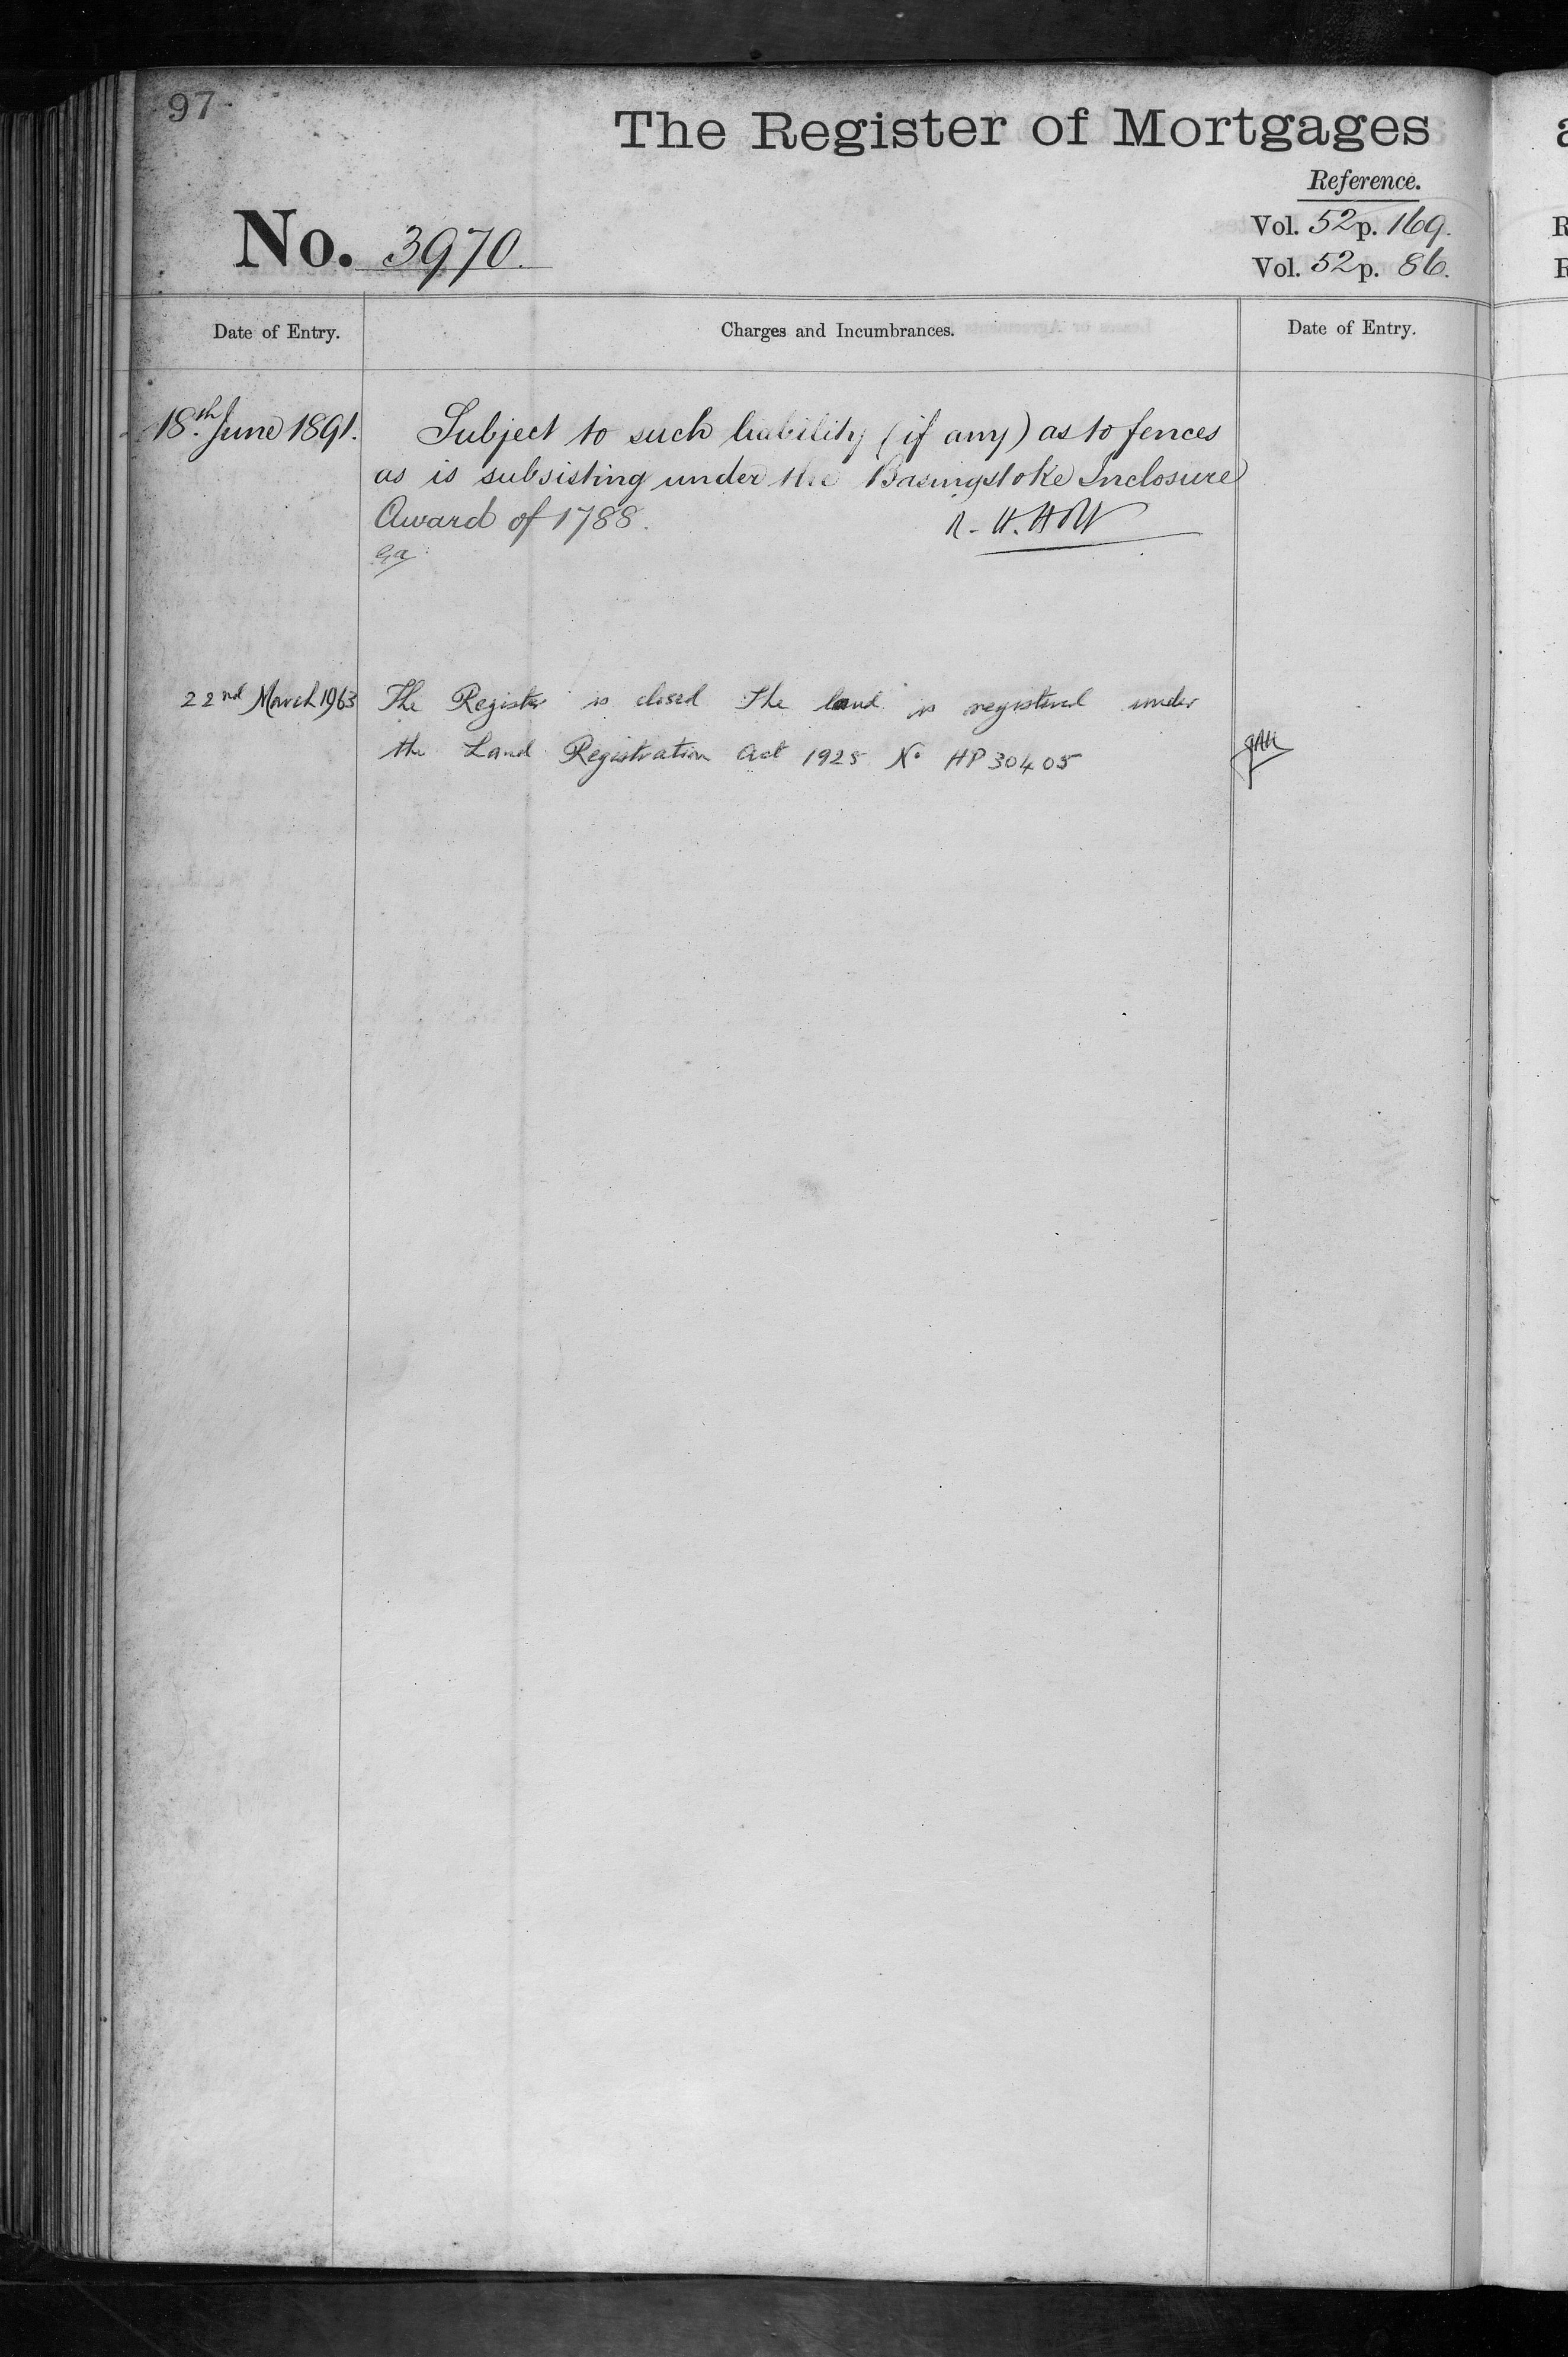 97
The Register of Mortgages
Reference.
No. 3970.
Vol. 52 p. 169.
Vol. 52 p. 86.
Date of Entry. Charges and Incumbrances. Date of Entry.
18th. June 1891. Subject to such liability (if any) as to fences
as is subsisting under the Basingstoke Inclosure
Award of 1788. R. H. Holt
22nd March 1963 The Register is closed The land is registered under
the Land Registration Act 1925 No HP 30405